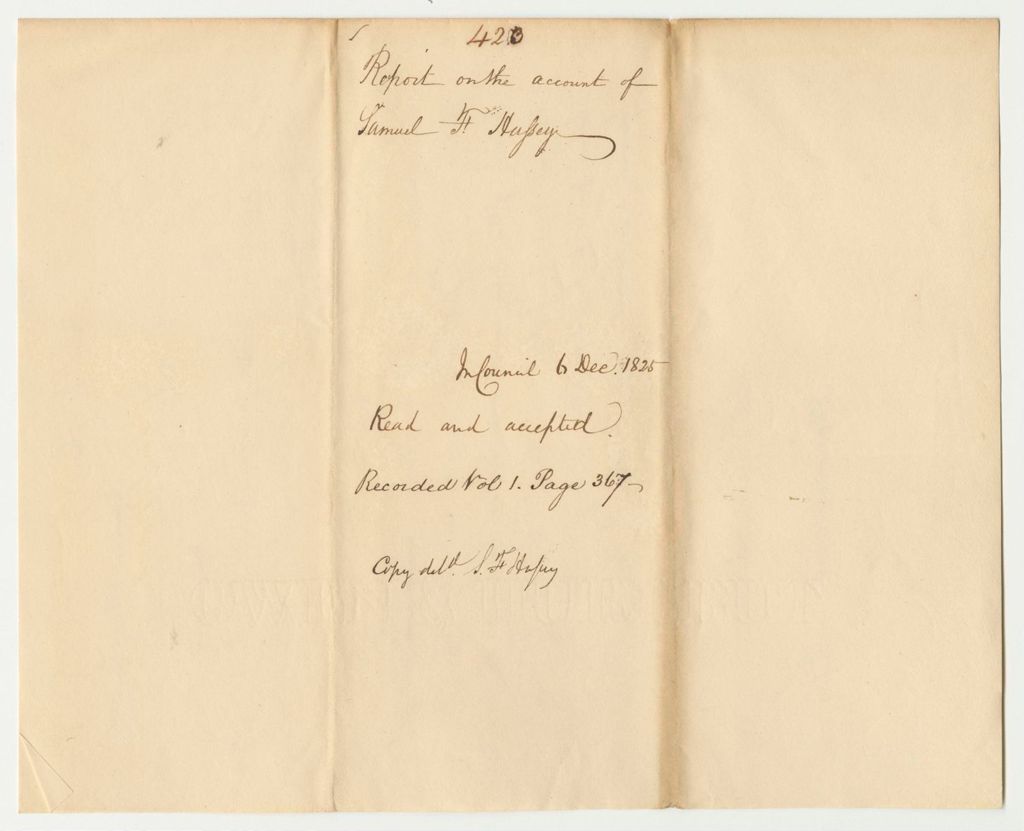 423
Report on the account of
Samuel F Hussey
In Council 6 Dec. 1825
Read and accepted.
Recorded Vol 1. Page 367
Copy deld. S. F Hussey